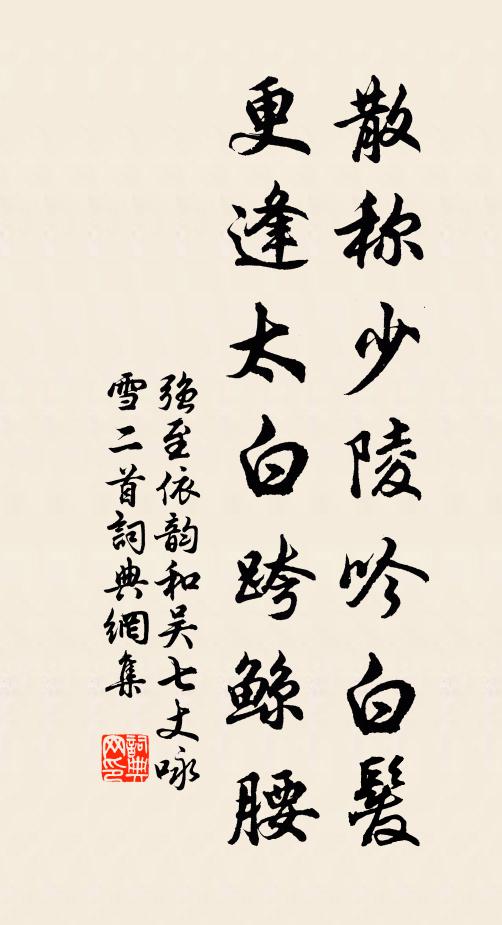 散称少陵吟白髮
更逢太白跨鲸腰
强至依韵和吴七丈咏
雪二首詞典網集
詞典網印